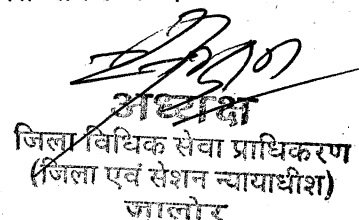 अध्यक्ष
जिला विधिक सेवा प्राधिकरण
(जिला एवं सेशन न्यायाधीश)
जालोर